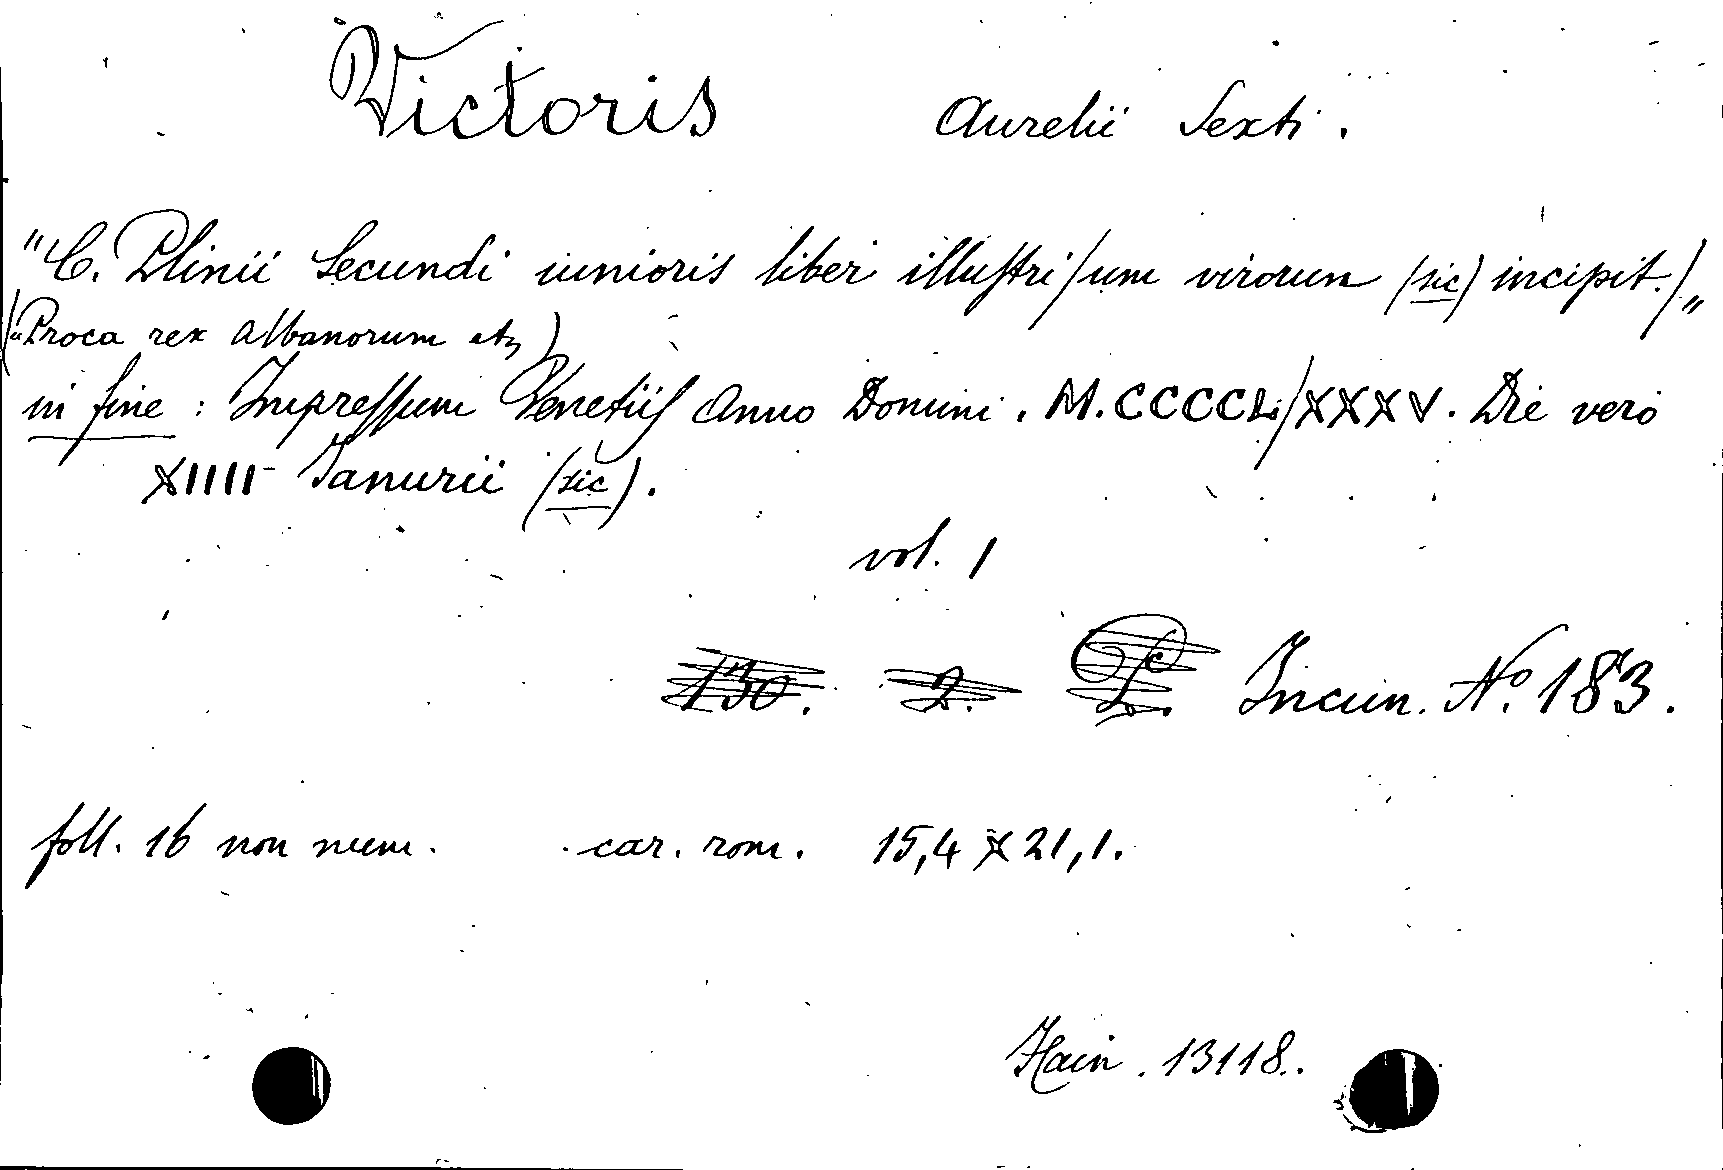 Victoris Aurelii Sexti.
"C. Plinii Secundi iunioris liber illuſtri/um virorum (sic) incipit./„
("Proca rex Albanorum etc)
in fine : Impreſſum Venetiiſ Anno Domini. M.CCCCL/XXXV. Die vero
XIIII Ianurii (sic).
vol. 1
130. 2. Incun. No. 183.
foll. 16 non num. car. rom. 15,4 x 21,1.
Hain. 13118.